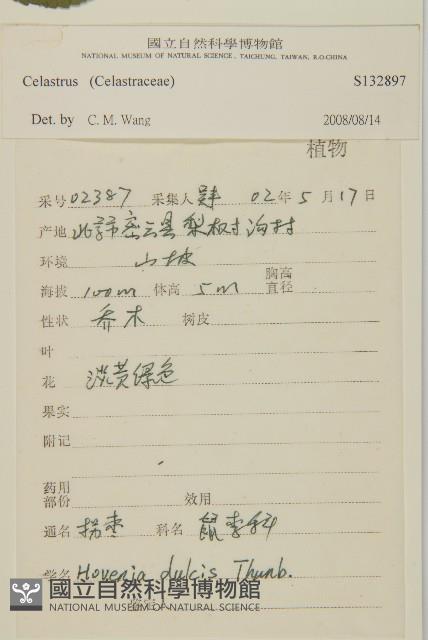 國立自然科學博物館
NATIONAL MUSEUM OF NATURAL SCIENCE, TAICHUNG, TAIWAN, R.O.CHINA
Celastrus (Celastraceae) S132897
Det. by C. M. Wang 2008/08/14
植物
采号 02387 采集人 02年5月17日
产地 北京市密云县梨树沟村
环境 山坡
海拔 100m 体高 5m 胸高直径
性状 乔木 树皮
叶
花 淡黄绿色
果实
附记
药用部份 效用
通名 拐枣 科名 鼠李科
学名 Hovenia dulcis Thunb.
國立自然科學博物館
NATIONAL MUSEUM OF NATURAL SCIENCE